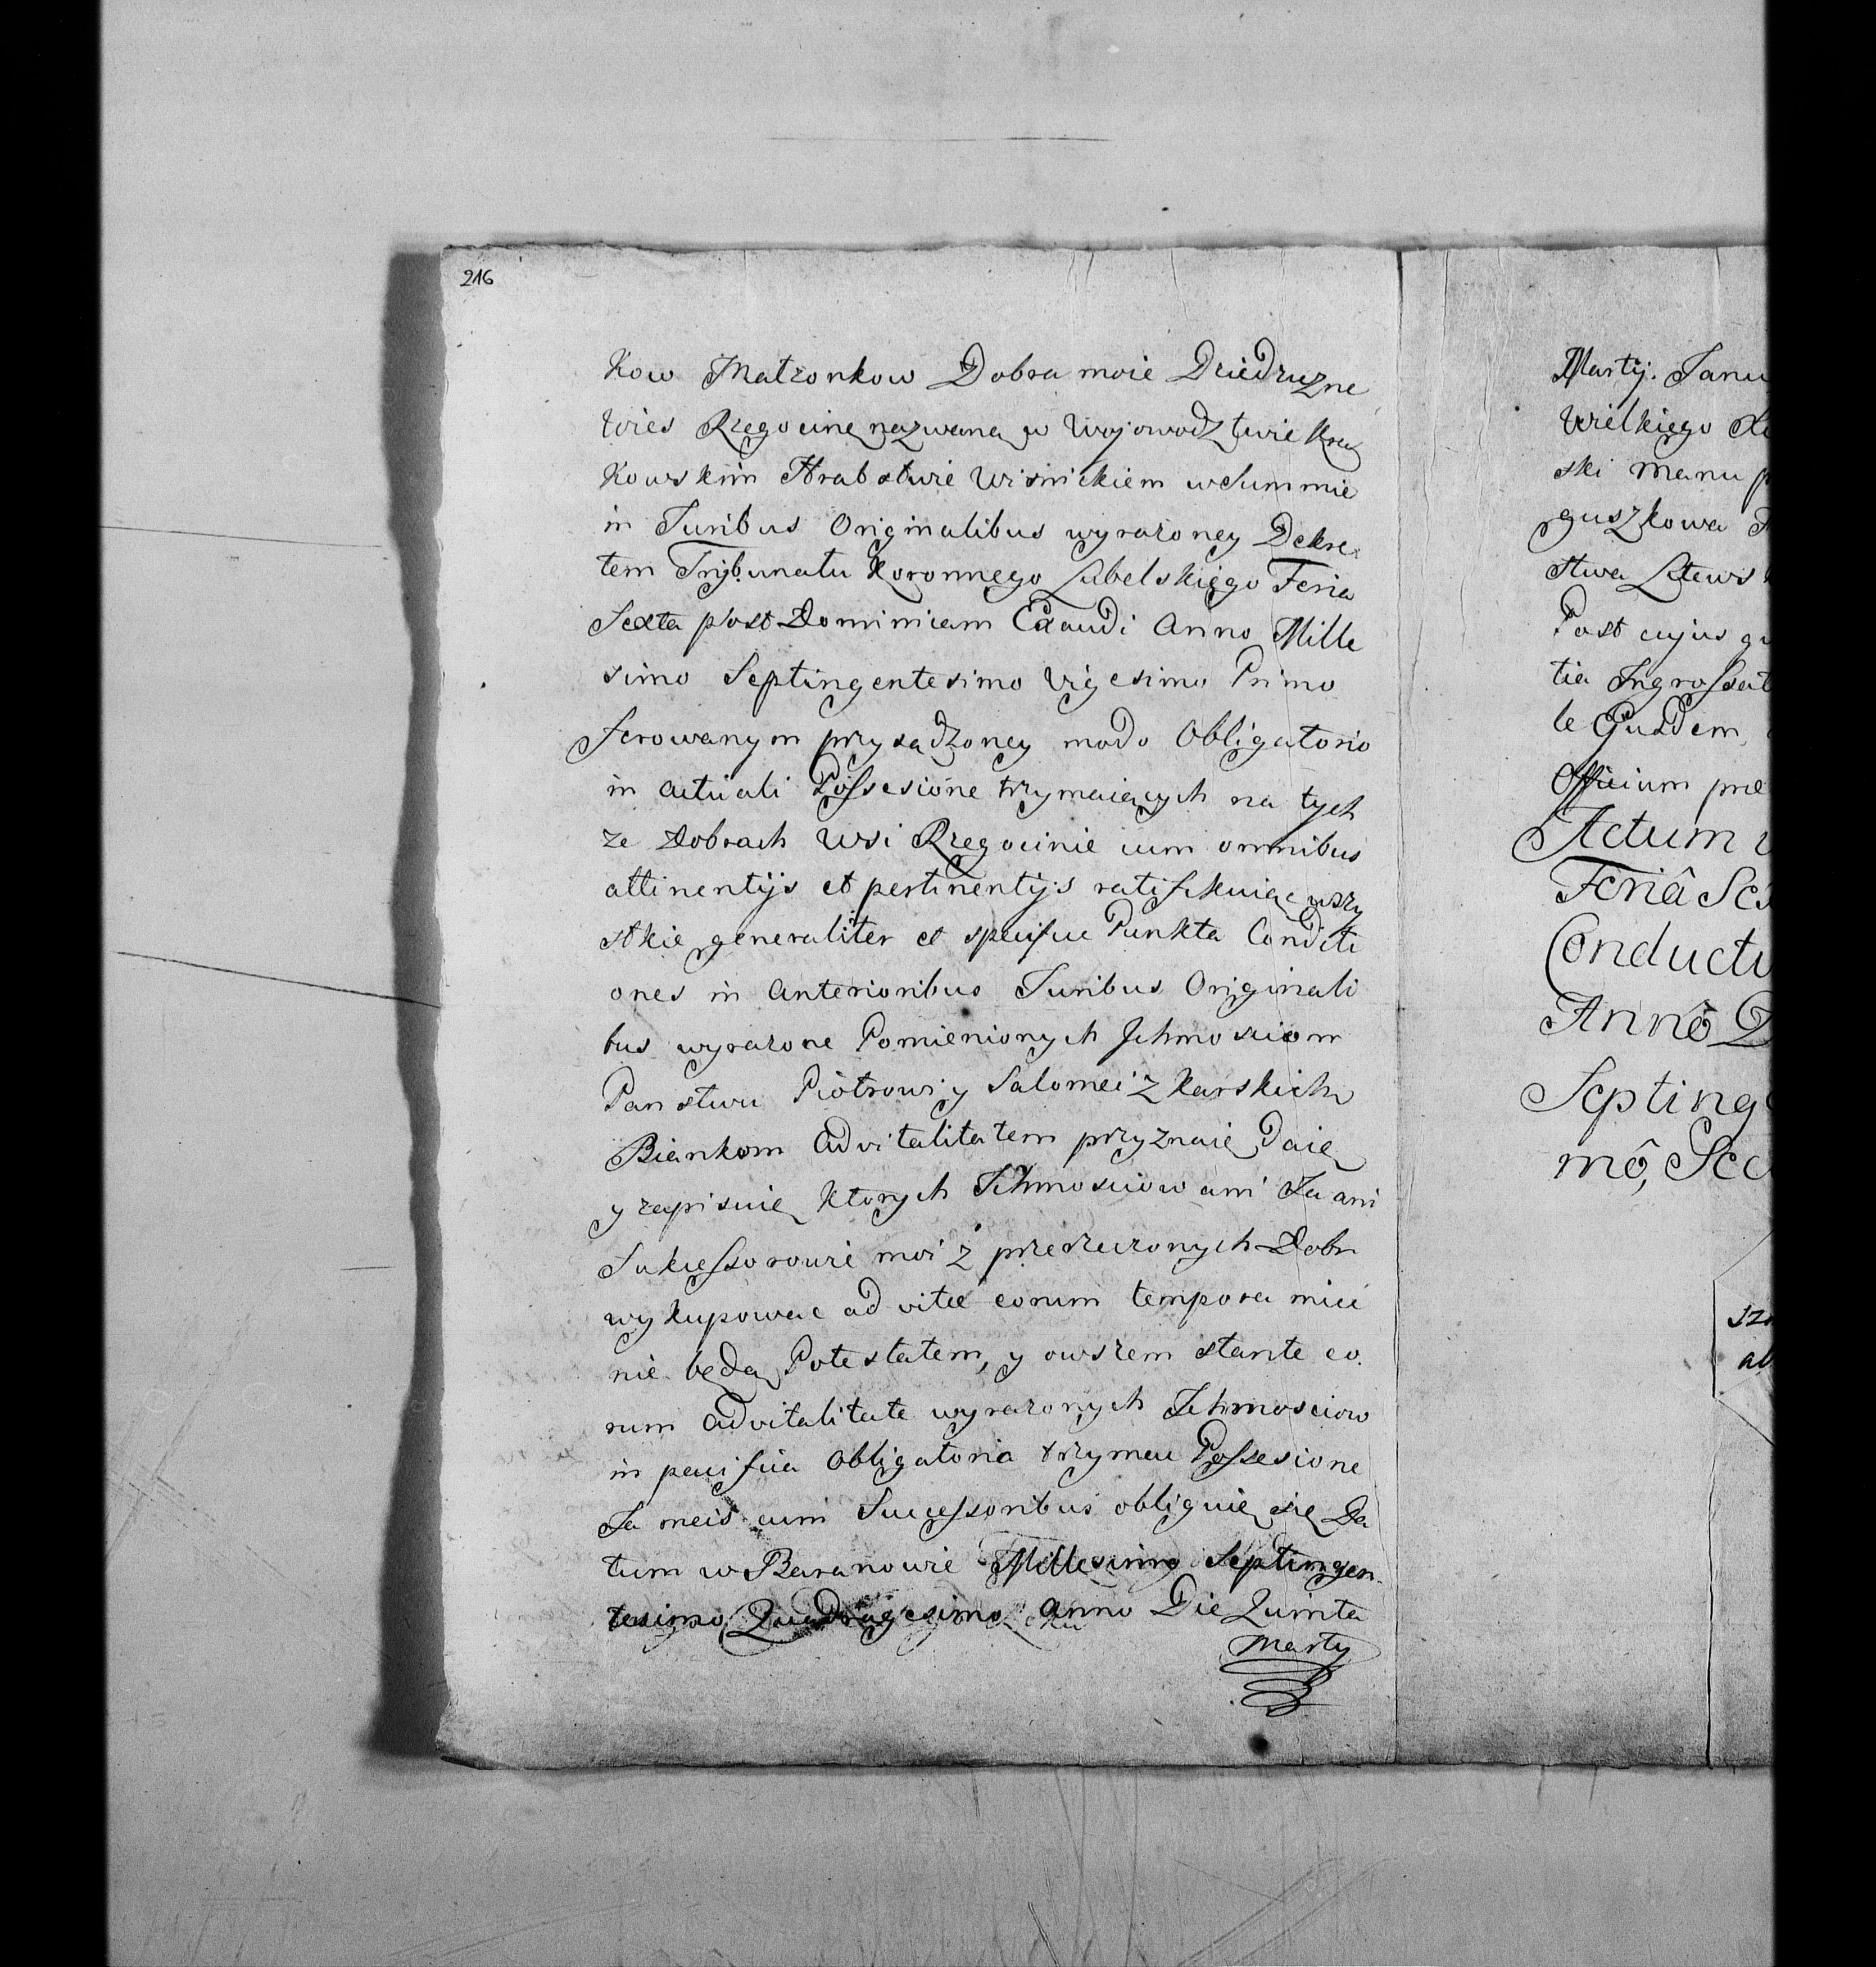 216
kow Małzonkow Dobra moie Dziedzuzne
wies Rzegocinę nazwaną w Wojowodztwie Kra
kowskim Hrabstwie Wisnickiem w Summie
in Juribus Originalibus wyrażoney Dekre-
tem Trybunatu Koronnego Lubelskiego Feria
Sexta post Dominicam Exaudi Anno Mille
simo Septingentesimo Vigesimo Primo
ferowanym przysądzoney modo Obligatorio
in actuali Possesione trzymaiących na tych
ze Dobrach Wsi Rzegocinie cum omnibus
attinentijs et pertinentijs ratifikuiąc wszy
stkie generaliter et specifice Punkta Conditi
ones in Anterioribus Juribus Originali
bus wyrażone Pomienionych Jchmosciom
Panstwu Piotrowi y Salomei z Karskich
Biankom Advitalitatem przyznaię Daię
y zapisuię ktorych Jchmosciow ani Ja ani
Sukcessorowie moi z przerzeczonych Dobr
wykupowac ad vitæ eorum tempora miec
nie będą Potestatem, y owszem stante eo.
rum Advitalitate wyrażonych Jchmosciow
in pacifica Obligatoria trzymac Possesione
Ja meis cum Successoribus obliguię się Da
tum w Baranowie Millesimo Septingen-
tesimo Quadragesimo Anno Die Quinta
Martij
Martij. Janu
Wielkiego
ski Manu
guszkowa
stwa Litews
Post cujus
tia Ingrossat
le Ejusdem,
Officium præ
Actum
Feriâ Sex
Conductu
Annô
Septing
mô, Sec